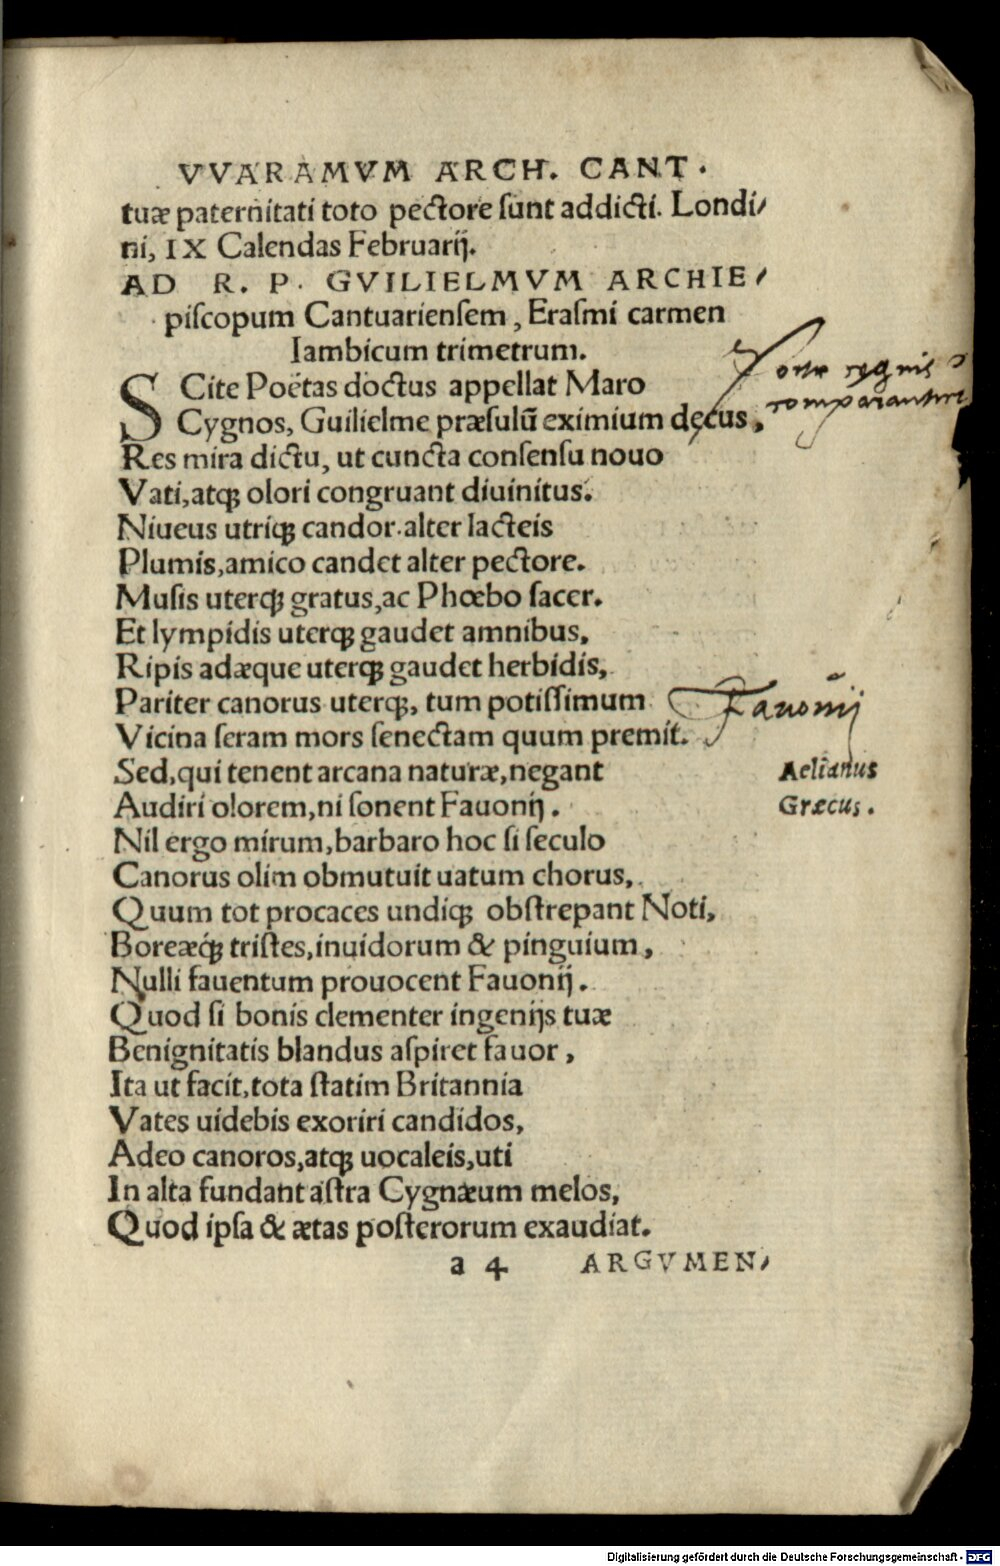 VVARAMVM ARCH. CANT.
tuæ paternitati toto pectore sunt addicti. Londi/
ni, IX Calendas Februarij.
AD R. P. GVILIELMVM ARCHIE/
piscopum Cantuariensem, Erasmi carmen
Iambicum trimetrum.
SCite Poëtas doctus appellat Maro
Cygnos, Guilielme præsulū eximium decus,
Poetæ cygnis
comparantur
Res mira dictu, ut cuncta consensu nouo
Vati, atqꝫ olori congruant diuinitus.
Niueus utriqꝫ candor. alter lacteis
Plumis, amico candet alter pectore.
Musis uterqꝫ gratus, ac Phœbo sacer.
Et lympidis uterqꝫ gaudet amnibus,
Ripis adæque uterqꝫ gaudet herbidis,
Pariter canorus uterqꝫ, tum potissimum
Fauonij
Vicina seram mors senectam quum premit.
Sed, qui tenent arcana naturæ, negant
Aelianus
Audiri olorem, ni sonent Fauonij.
Græcus.
Nil ergo mirum, barbaro hoc si seculo
Canorus olim obmutuit uatum chorus,
Quum tot procaces undiqꝫ obstrepant Noti,
Boreæq́ꝫ tristes, inuidorum & pinguium,
Nulli fauentum prouocent Fauonij.
Quod si bonis clementer ingenijs tuæ
Benignitatis blandus aspiret fauor,
Ita ut facit, tota statim Britannia
Vates uidebis exoriri candidos,
Adeo canoros, atqꝫ uocaleis, uti
In alta fundant astra Cygnæum melos,
Quod ipsa & ætas posterorum exaudiat.
a 4 ARGVMEN/
Digitalisierung gefördert durch die Deutsche Forschungsgemeinschaft - DFG